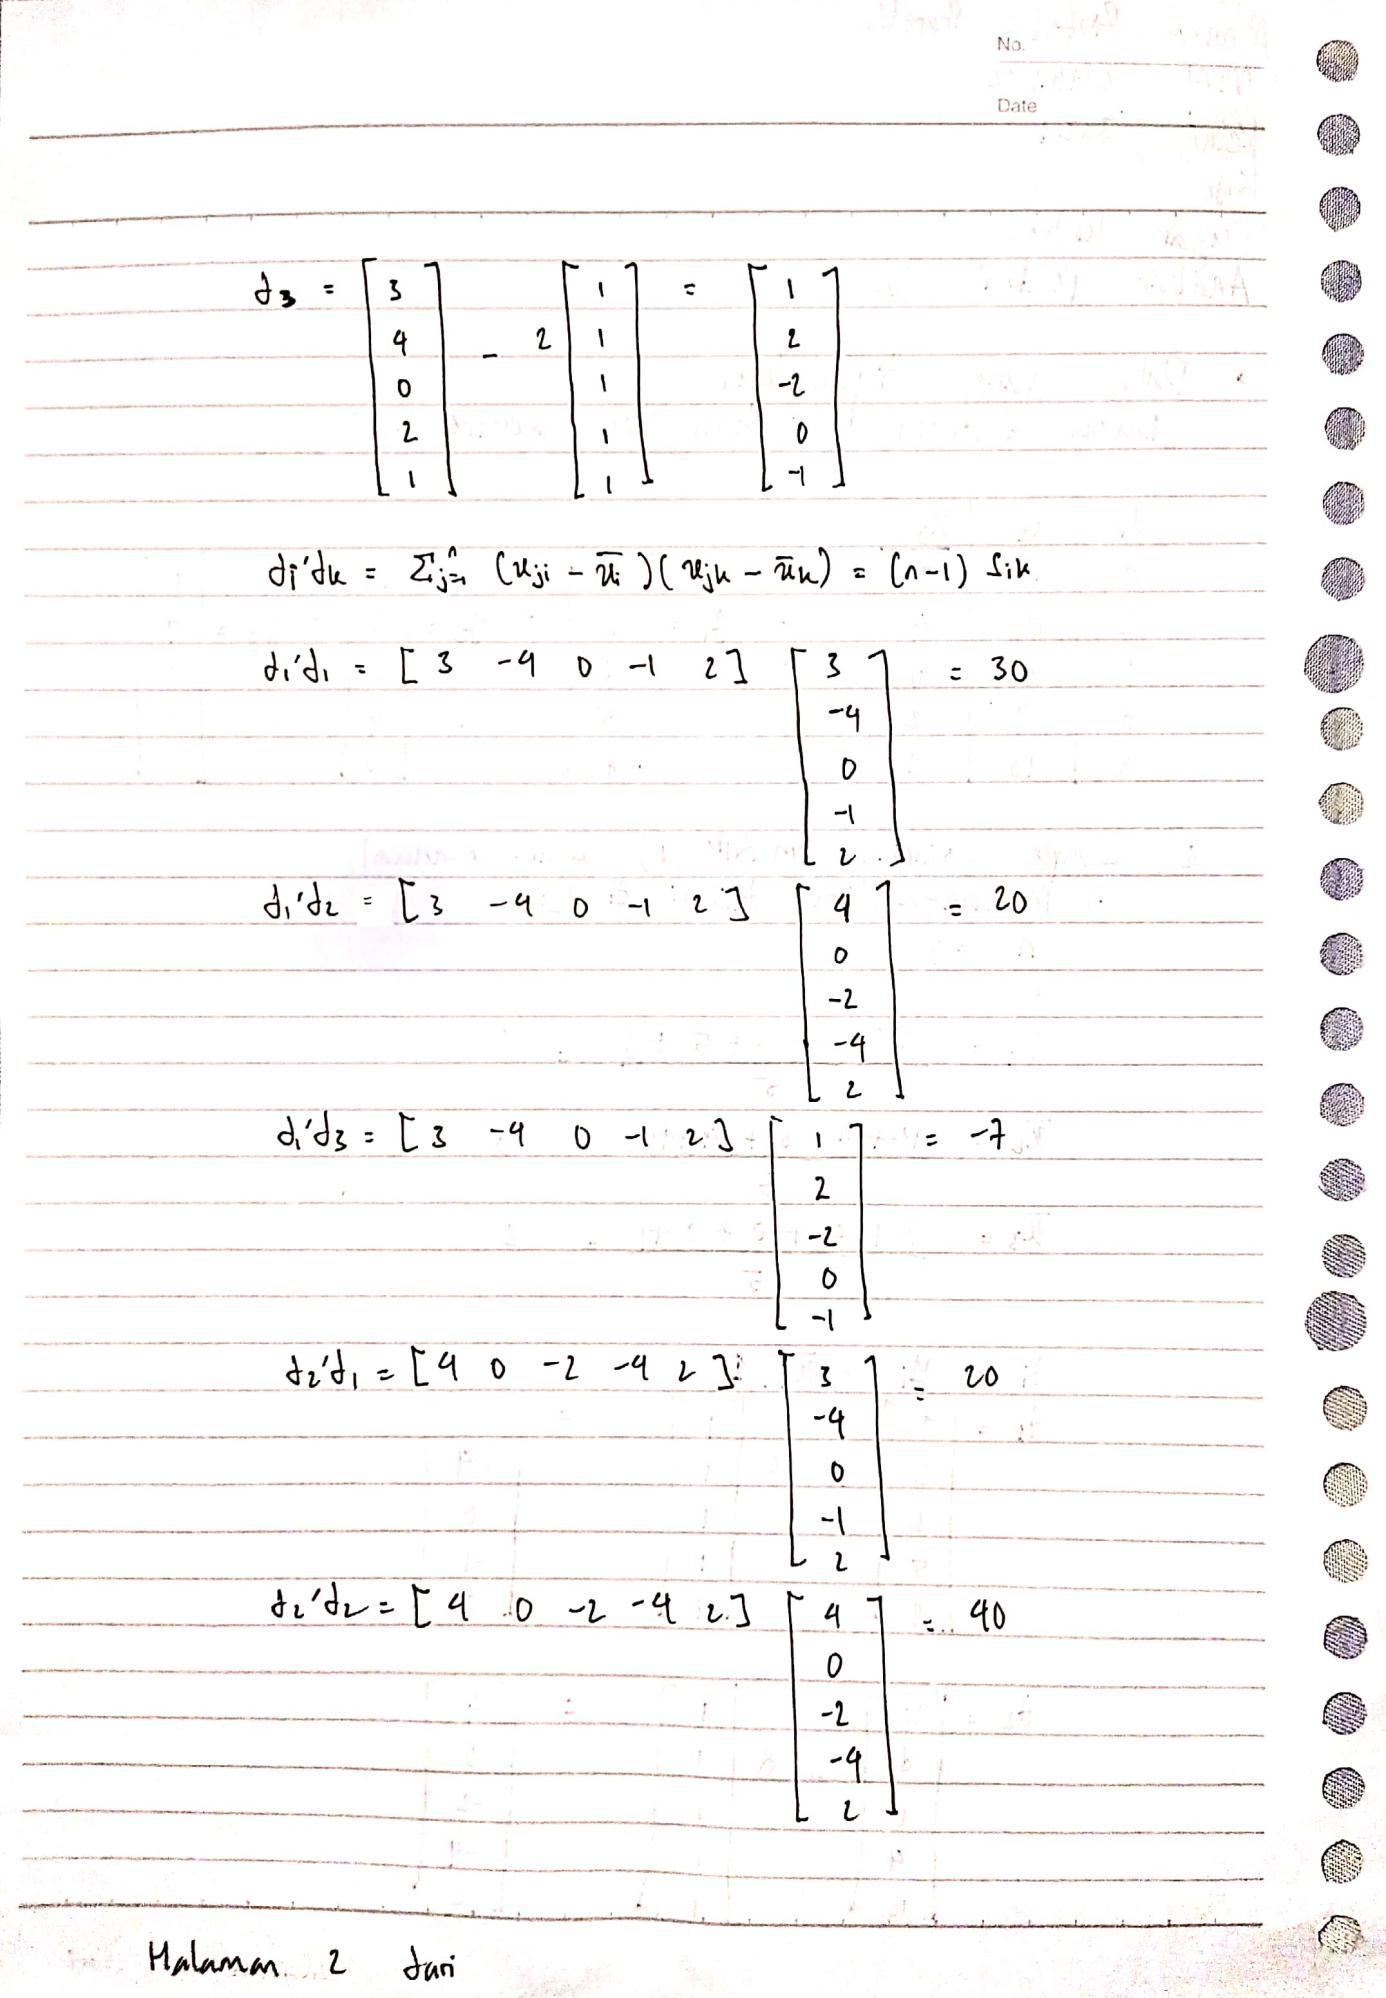 No.
Date
d₃ = [3 4 0 2 1] - 2 [1 1 1 1 1] = [1 2 -2 0 -1]
dᵢ'dₖ = Σⱼ₌₁ⁿ (xⱼᵢ - x̄ᵢ)(xⱼₖ - x̄ₖ) = (n-1) Sᵢₖ
d₁'d₁ = [3 -4 0 -1 2] [3 -4 0 -1 2] = 30
d₁'d₂ = [3 -4 0 -1 2] [4 0 -2 -4 2] = 20
d₁'d₃ = [3 -4 0 -1 2] [1 2 -2 0 -1] = -7
d₂'d₁ = [4 0 -2 -4 2] [3 -4 0 -1 2] = 20
d₂'d₂ = [4 0 -2 -4 2] [4 0 -2 -4 2] = 40
Halaman 2 dari